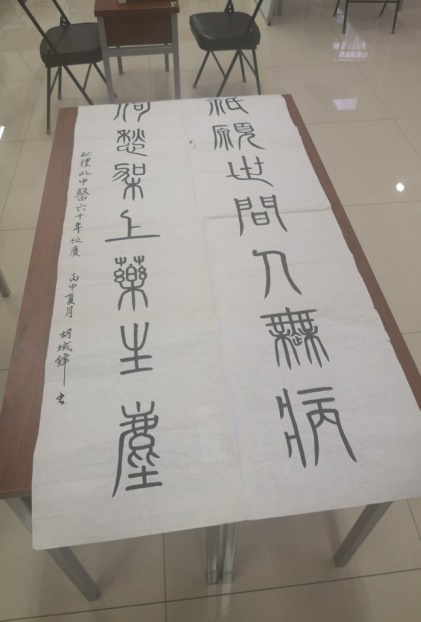 祇願世間人無病
何愁架上藥生塵
禮北中醫六十年校慶 丙申夏月 胡城鋒 书